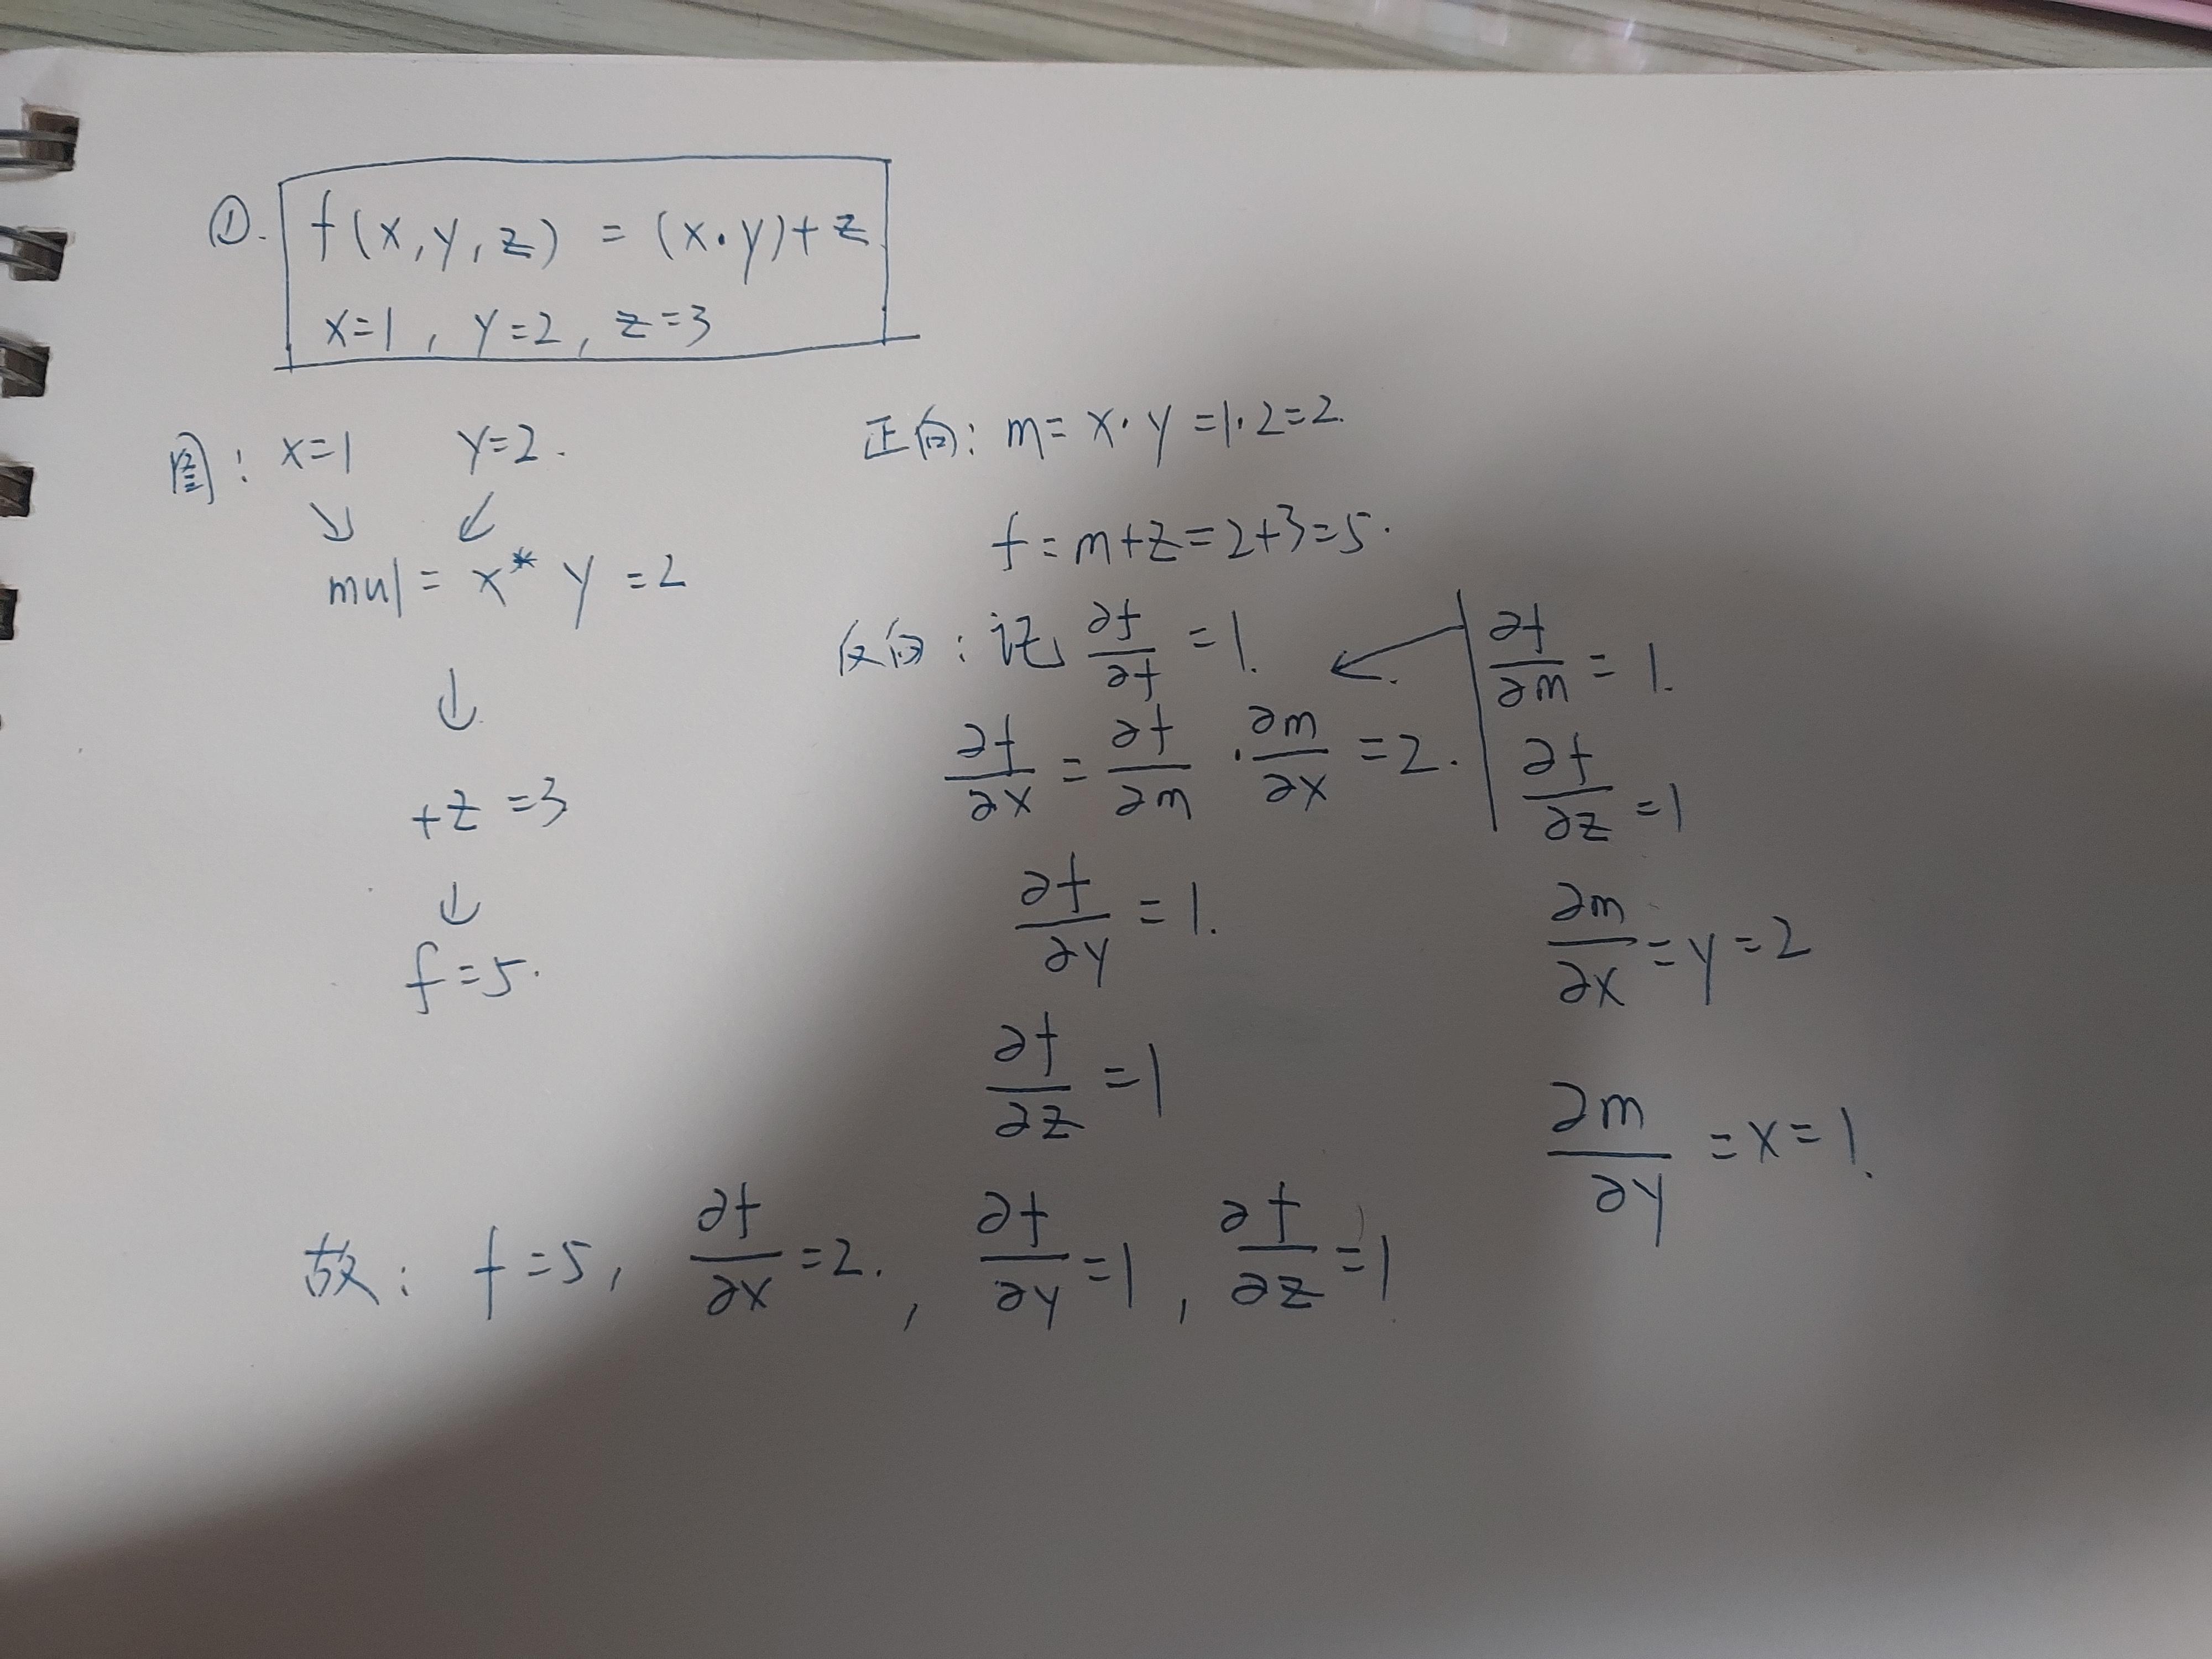 ①. f(x,y,z) = (x·y)+z
x=1, y=2, z=3
图: x=1 y=2.
↘ ↙
mul = x* y =2
↓
+z =3
↓
f=5.
正向: m= x·y =1·2=2.
f=m+z=2+3=5.
反向: 记 ∂f/∂f =1.
∂f/∂x = ∂f/∂m · ∂m/∂x =2.
∂f/∂y =1.
∂f/∂z =1
∂f/∂m = 1.
∂f/∂z =1
∂m/∂x =y=2
∂m/∂y =x=1.
故: f=5, ∂f/∂x =2. , ∂f/∂y =1 , ∂f/∂z =1